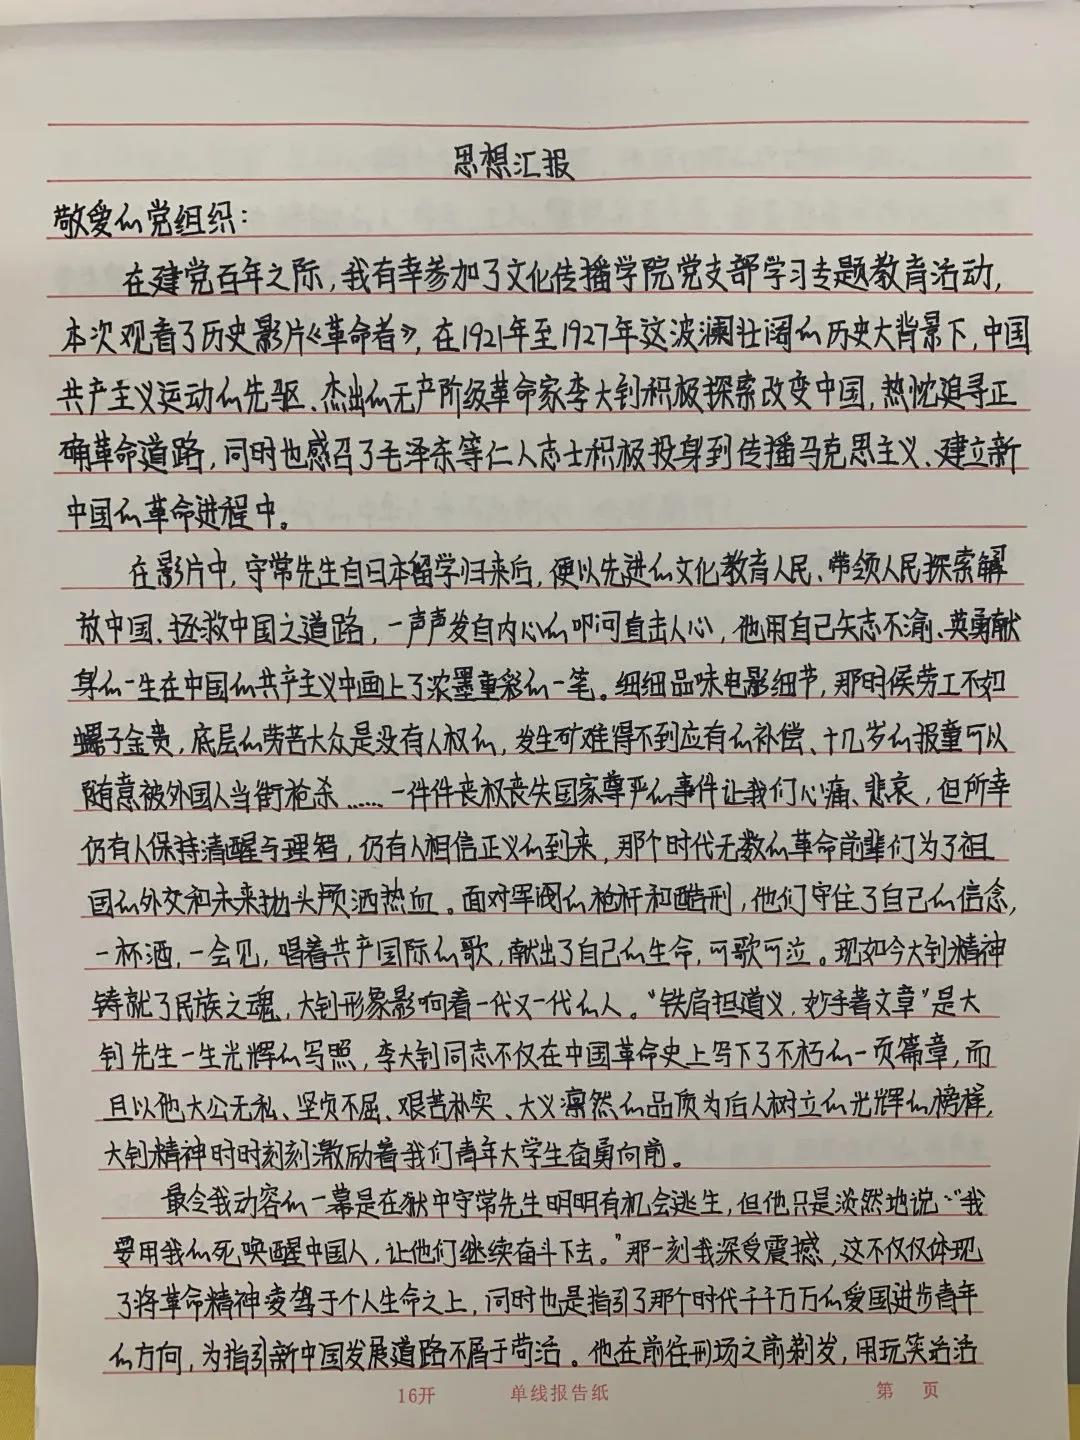 思想汇报
敬爱的党组织：
在建党百年之际，我有幸参加了文化传播学院党支部学习专题教育活动，
本次观看了历史影片《革命者》，在1921年至1927年这波澜壮阔的历史大背景下，中国
共产主义运动的先驱、杰出的无产阶级革命家李大钊积极探索改变中国，热忱追寻正
确革命道路，同时也感召了毛泽东等仁人志士积极投身到传播马克思主义、建立新
中国的革命进程中。
在影片中，守常先生自日本留学归来后，便以先进的文化教育人民、带领人民探索解
放中国、拯救中国之道路，一声声发自内心的叩问直击人心，他用自己矢志不渝、英勇献
身的一生在中国的共产主义中画上了浓墨重彩的一笔。细细品味电影细节，那时候劳工不如
骡子金贵，底层的劳苦大众是没有人权的，发生矿难得不到应有的补偿、十几岁的报童可以
随意被外国人当街枪杀……一件件丧权丧失国家尊严的事件让我们心痛、悲哀，但所幸
仍有人保持清醒与理智，仍有人相信正义的到来，那个时代无数的革命前辈们为了祖
国的外交和未来抛头颅洒热血。面对军阀的枪杆和酷刑，他们守住了自己的信念，
一杯酒，一会见，唱着共产国际的歌，献出了自己的生命，可歌可泣。现如今大钊精神
铸就了民族之魂，大钊形象影响着一代又一代的人。“铁肩担道义，妙手著文章”是大
钊先生一生光辉的写照，李大钊同志不仅在中国革命史上写下了不朽的一页篇章，而
且以他大公无私、坚贞不屈、艰苦朴实、大义凛然的品质为后人树立的光辉的榜样，
大钊精神时时刻刻激励着我们青年大学生奋勇向前。
最令我动容的一幕是在狱中守常先生明明有机会逃生，但他只是淡然地说：“我
要用我的死唤醒中国人，让他们继续奋斗下去。”那一刻我深受震撼，这不仅仅体现
了将革命精神凌驾于个人生命之上，同时也是指引了那个时代千千万万的爱国进步青年
的方向，为指引新中国发展道路不屑于苟活。他在前往刑场之前剃发，用玩笑话活
16开 单线报告纸 第 页